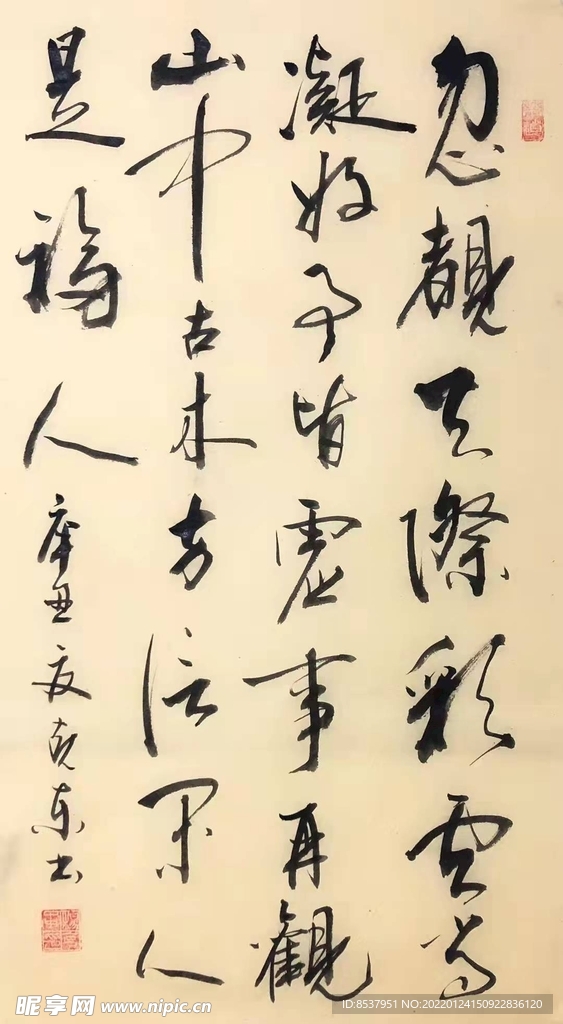 忽覩天際彩雲常
凝好事皆虛事再觀
山中古木方信閑人
是福人
辛丑夏克東书
昵享网 www.nipic.cn
ID:8537951 NO:20220124150922836120